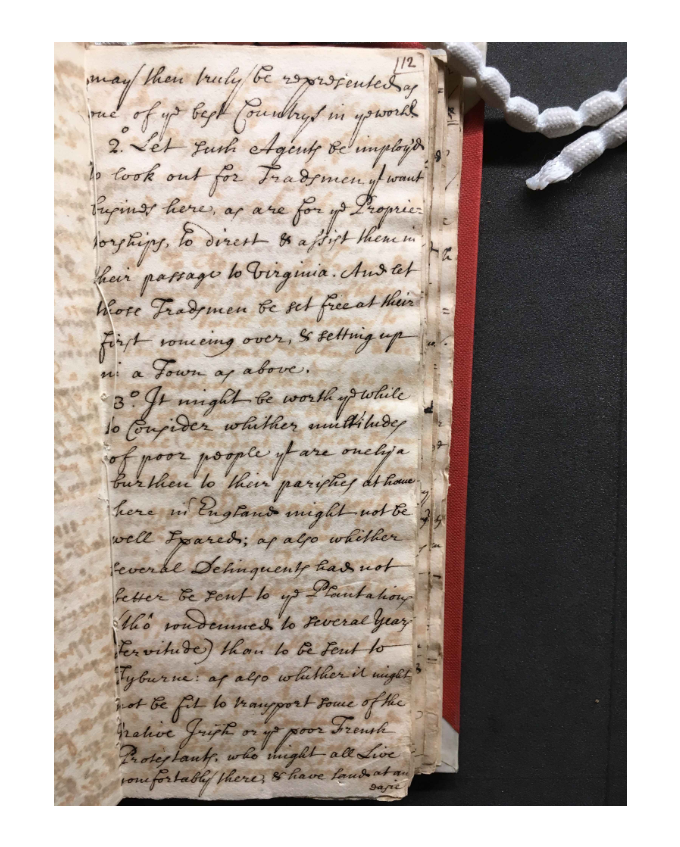 112
may then truly be represented as
one of yᵉ best Countrys in yᵉ world
2.° Let such Agents be imploy'd
to look out for Tradsmen yᵗ want
businds here, as are for yᵉ Proprie=
torships, to direct & assist them in
their passage to Virginia. And let
those Tradsmen be set free at their
first comeing over, & setting up
in a Town as above.
3°. It might be worth yᵉ while
to Consider whither multitudes
of poor people yᵗ are onely a
burthen to their parishes at home
here in England might not be
well spared; as also whither
several Delinquents had not
better be sent to yᵉ Plantations
(thô condemned to several Years
servitude) than to be sent to
Tyburne: as also whither it might
not be fit to transport some of the
native Irish or yᵉ poor French
Protestants, who might all Live
comfortably there; & have land at an
easie